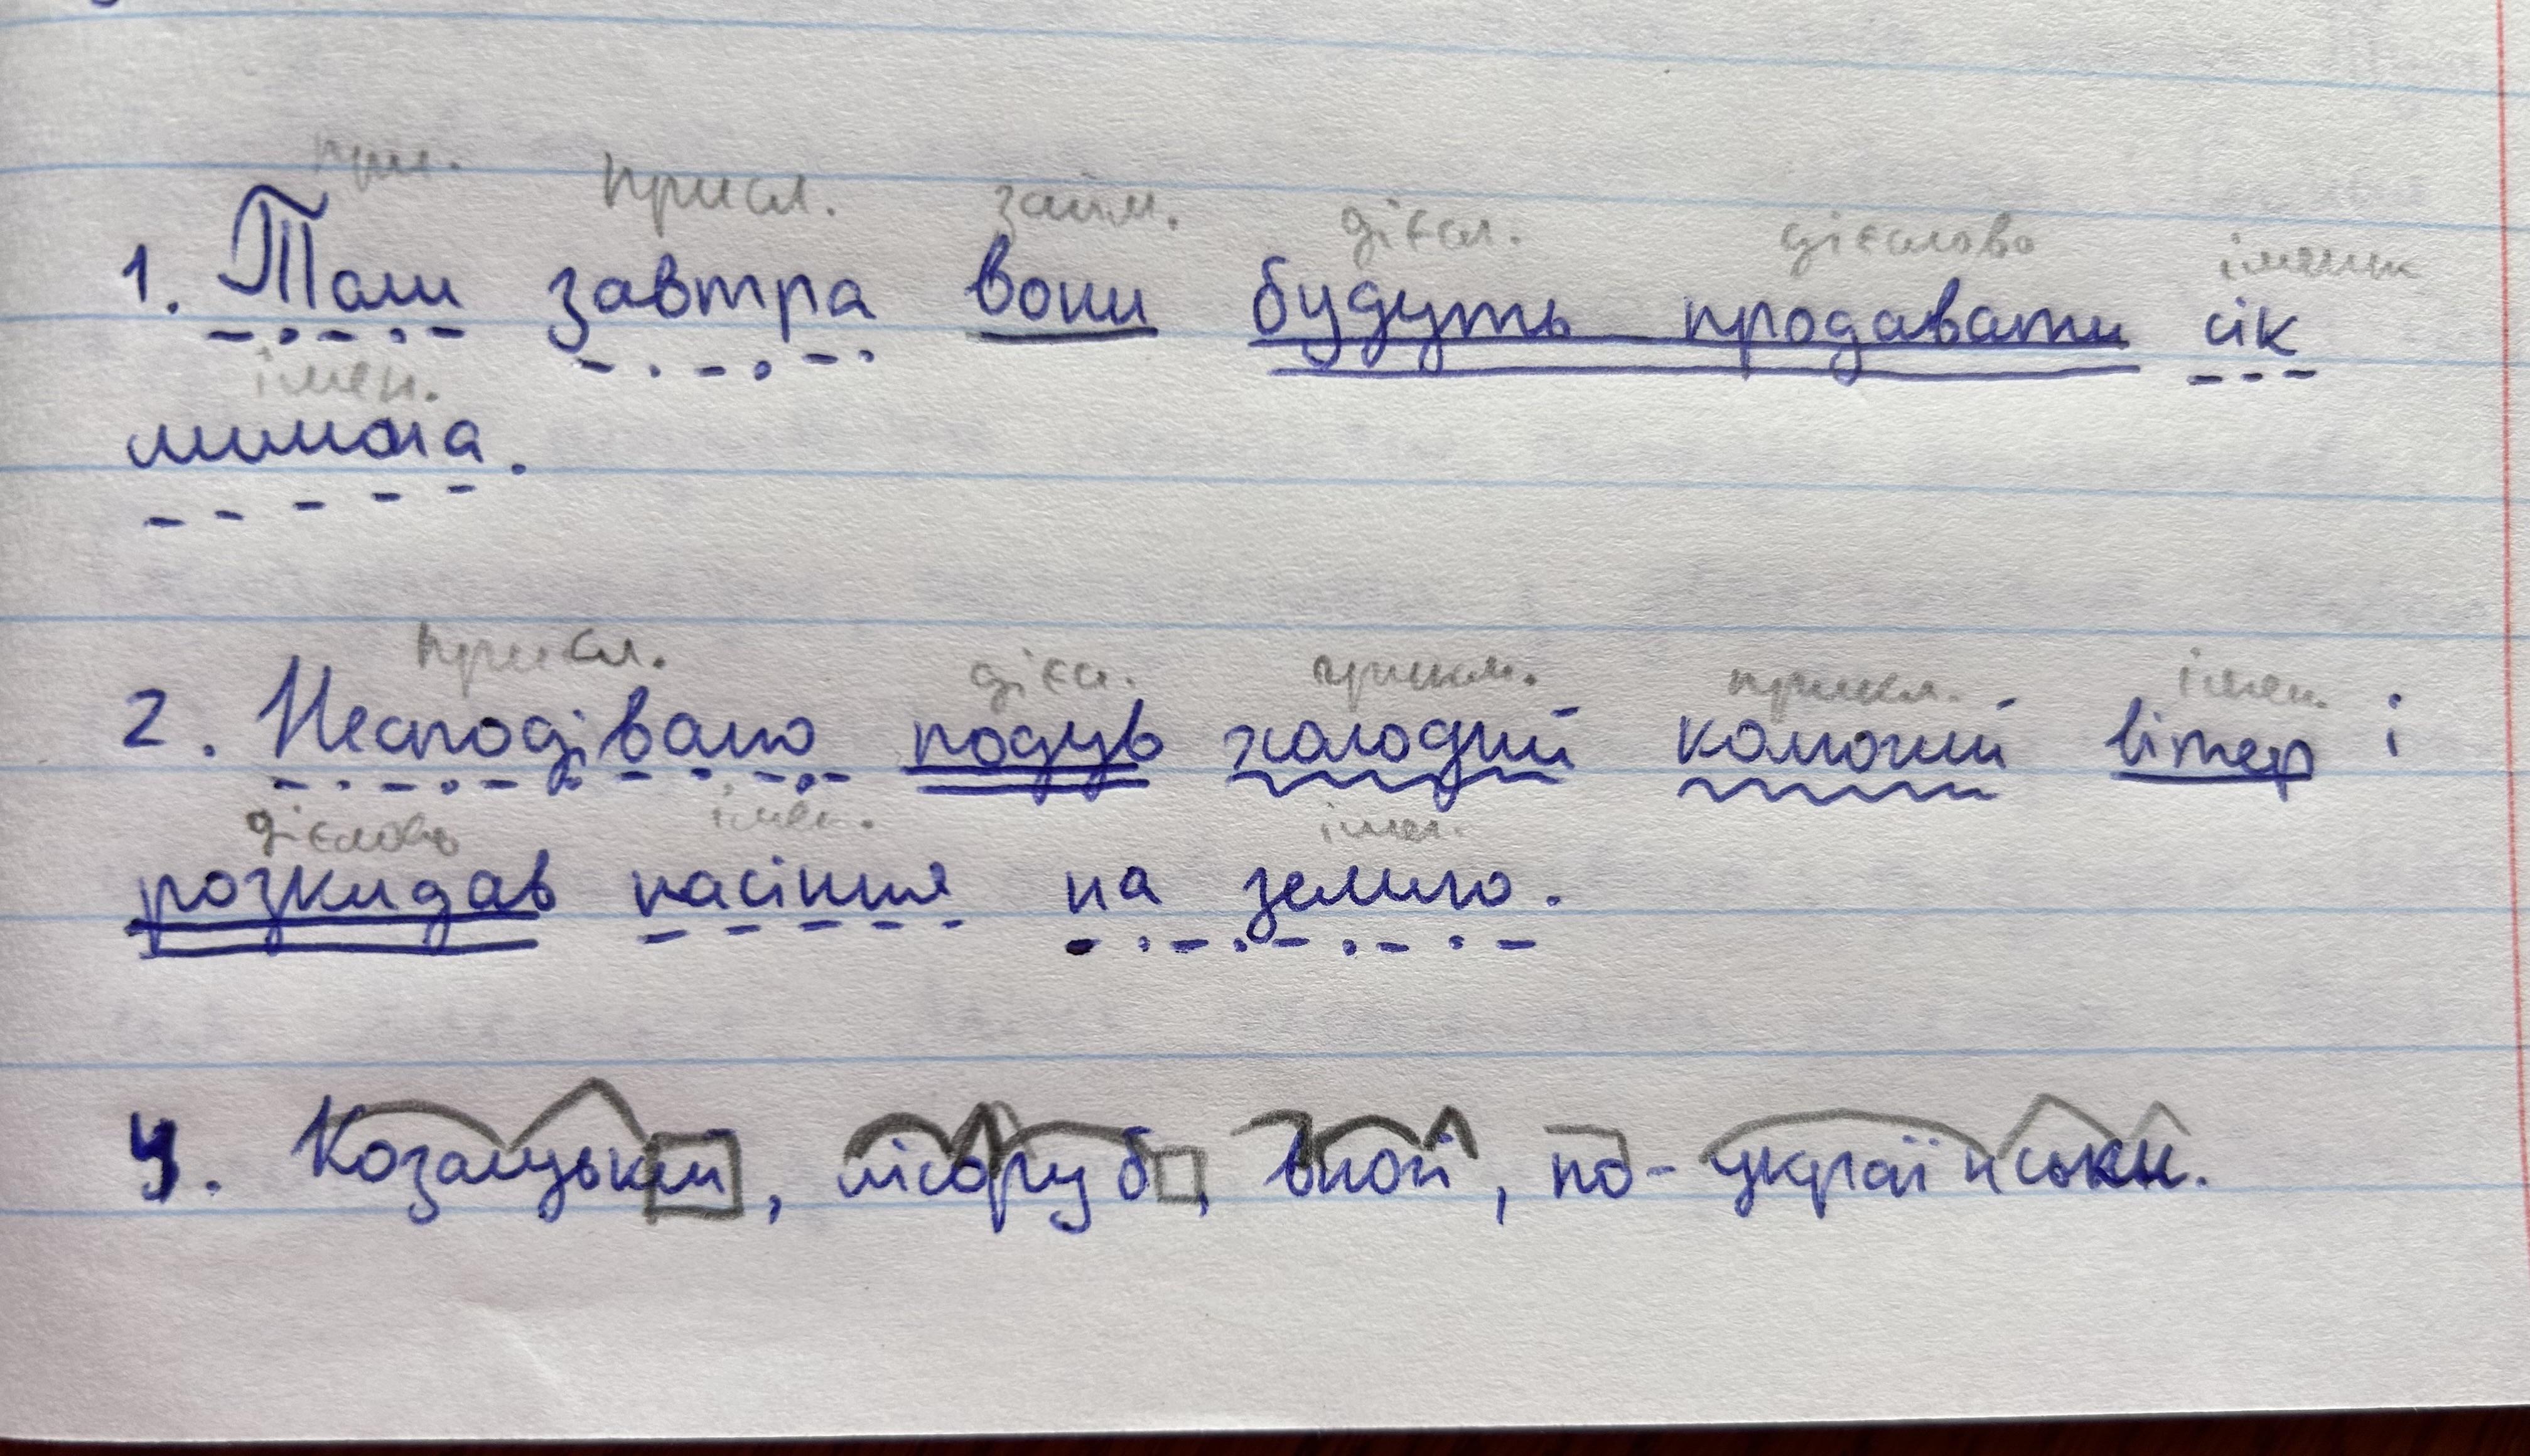 присл. займ. дієсл. дієслово іменник
1. Там завтра вони будуть продавати сік
імен.
лимона.
присл. дієсл. прикм. прикм. імен.
2. Несподівано подув холодний колючий вітер і
дієслово імен. імен.
розкидав насіння на землю.
4. Козацький, лісоруб, вночі, по-українськи.